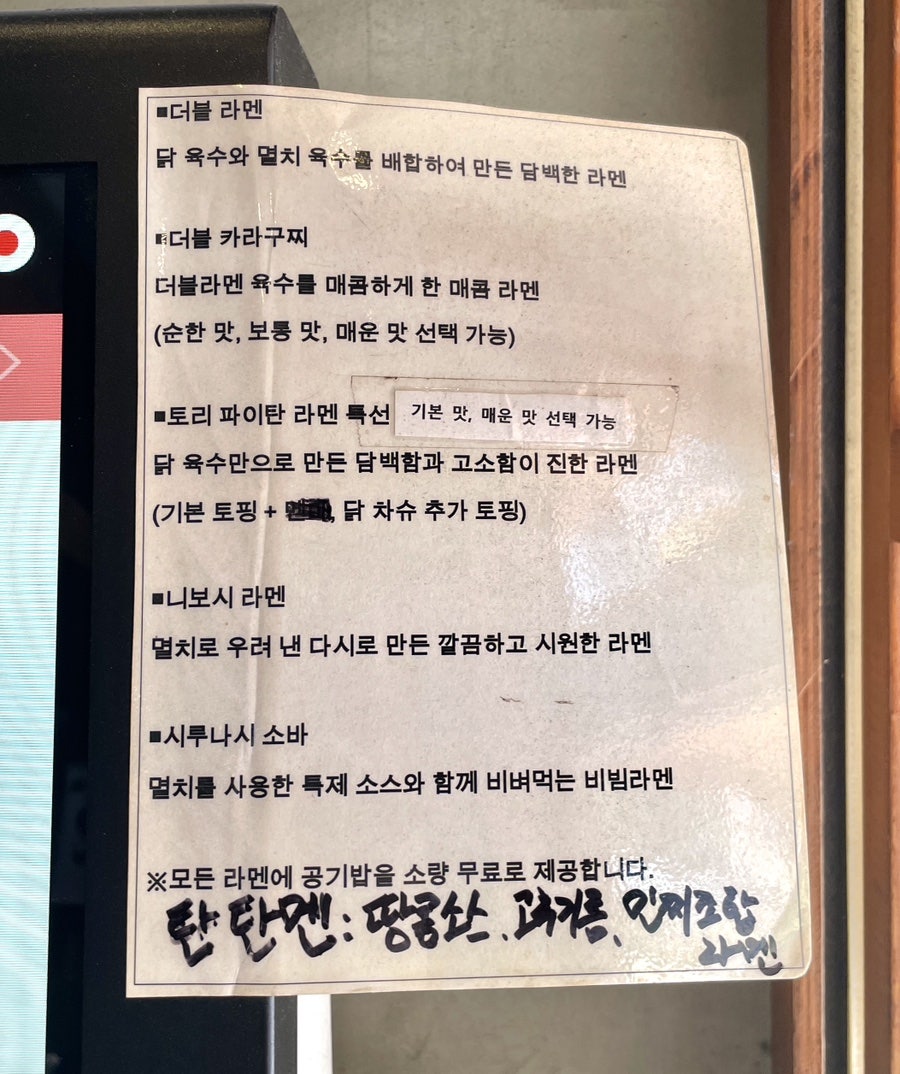 ■더블 라멘
닭 육수와 멸치 육수를 배합하여 만든 담백한 라멘
■더블 카라구찌
더블라멘 육수를 매콤하게 한 매콤 라멘
(순한 맛, 보통 맛, 매운 맛 선택 가능)
■토리 파이탄 라멘 특선 기본 맛, 매운 맛 선택 가능
닭 육수만으로 만든 담백함과 고소함이 진한 라멘
(기본 토핑 + , 닭 차슈 추가 토핑)
■니보시 라멘
멸치로 우려 낸 다시로 만든 깔끔하고 시원한 라멘
■시루나시 소바
멸치를 사용한 특제 소스와 함께 비벼먹는 비빔라멘
※모든 라멘에 공기밥을 소량 무료로 제공합니다.
탄탄멘: 땅콩소스, 고추기름,
라멘